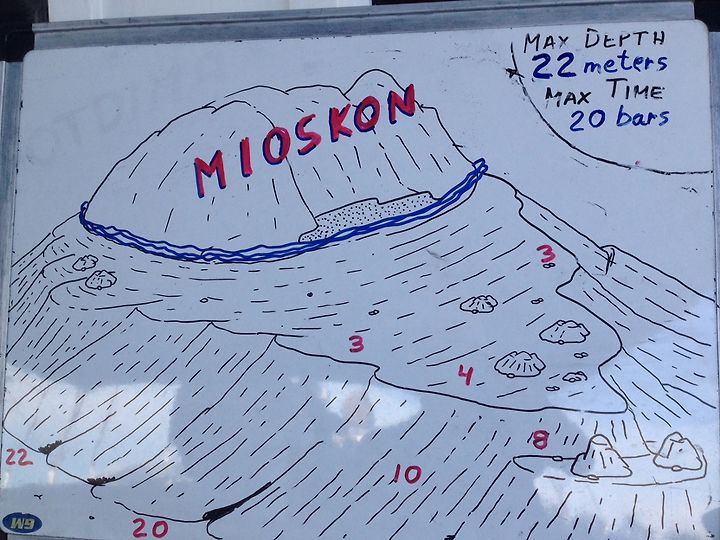 MAX DEPTH
22 meters
MAX TIME
20 bars
MIOSKON
3
3
4
8
10
22
20